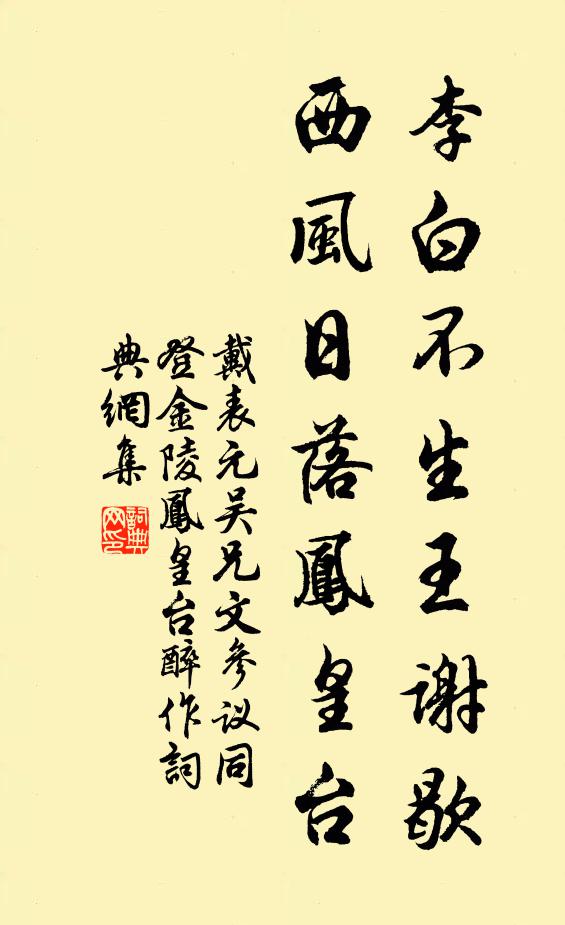 李白不生王謝歇
西風日落鳳皇台
戴表元吴兄文參议同
登金陵鳳皇台醉作詞
典網集
詞典
网印